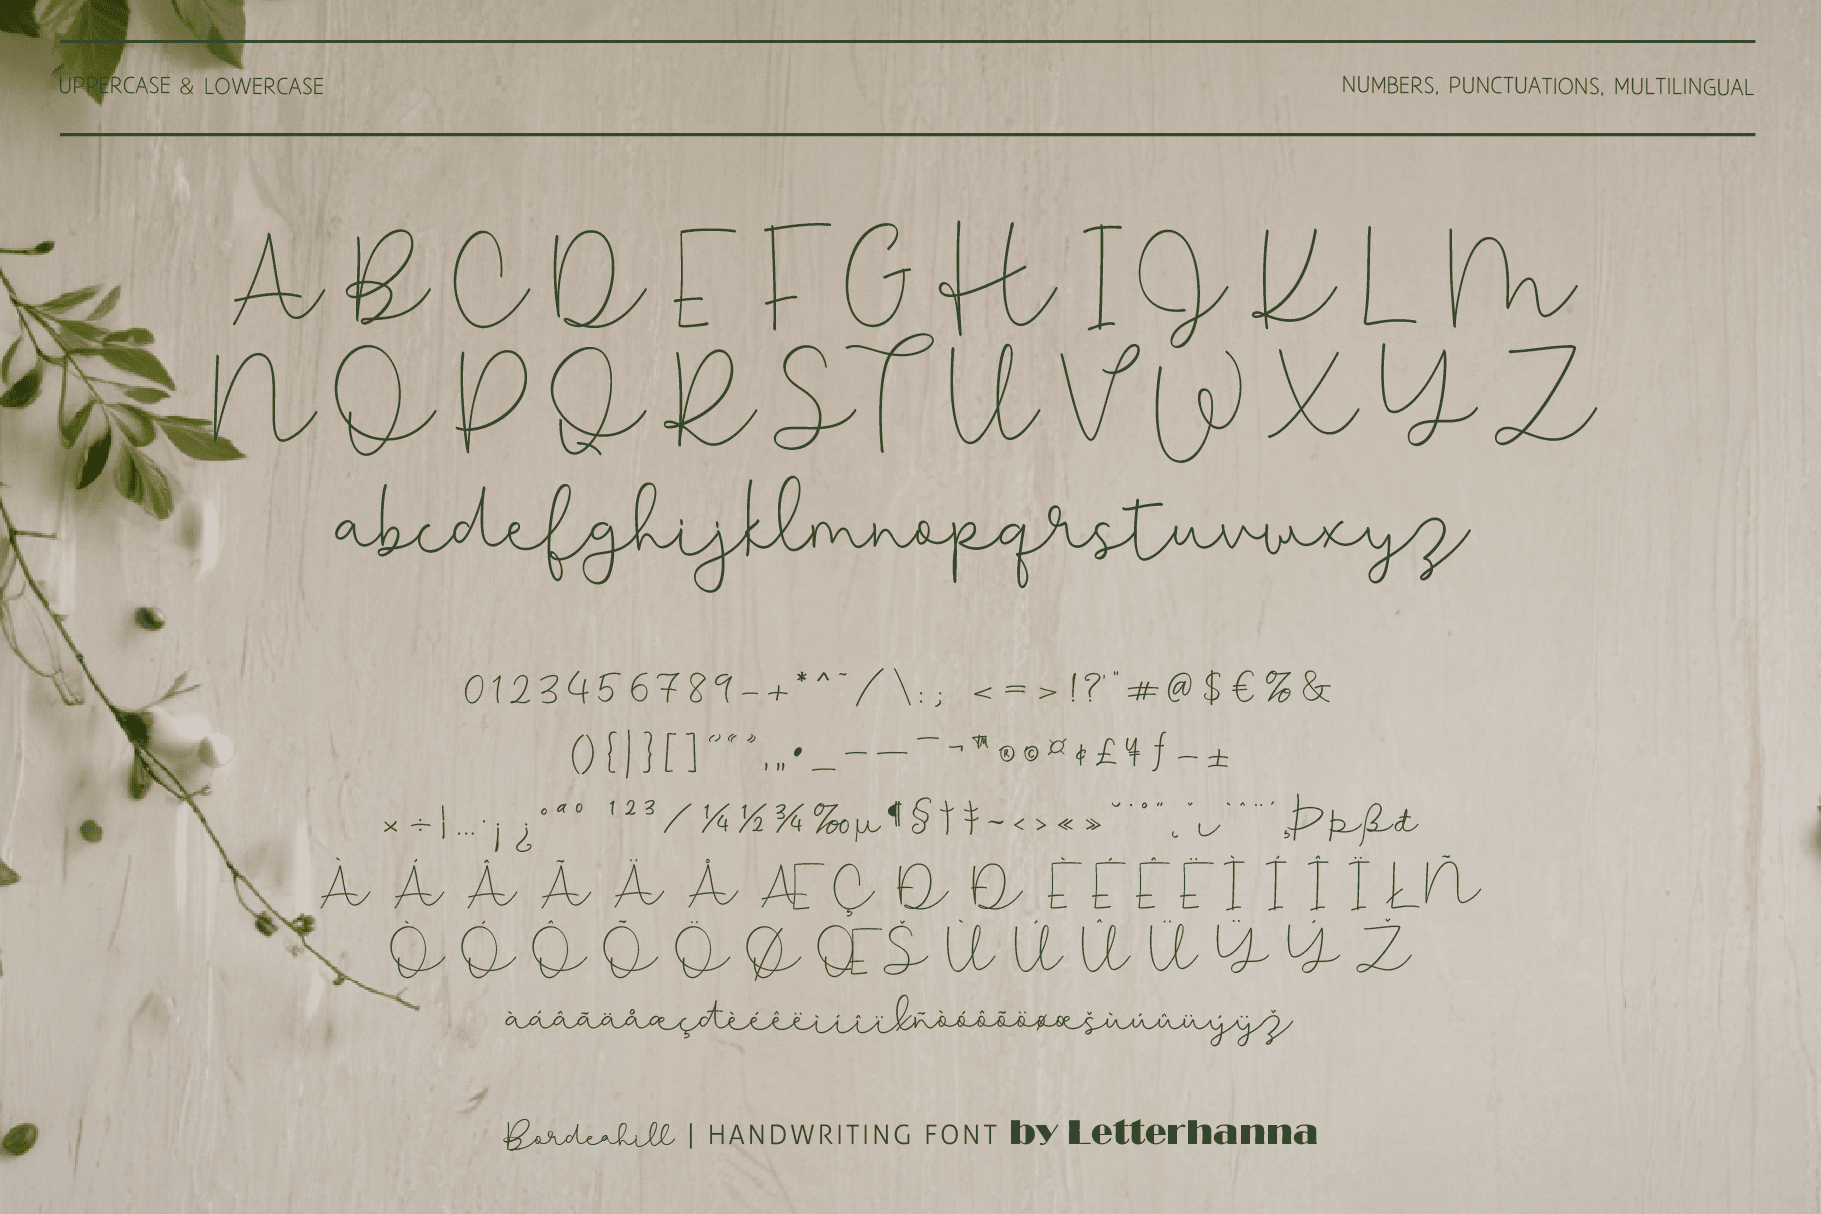 UPPERCASE & LOWERCASE
NUMBERS, PUNCTUATIONS, MULTILINGUAL
A B C D E F G H I J K L M
N O P Q R S T U V W X Y Z
abcdefghijklmnopqrstuvwxyz
0123456789-+*^~/\:; <=>!?'"#@$€%&
(){|}[]‘’“”‚„•_–—¯¬™®©¤¢£¥ƒ−±
×÷¦…·¡¿°ªº ¹²³⁄¼½¾‰µ¶§†‡~‹›«»˘˙˚˝˛ˇ`ˆ¨´¸Þþßđ
À Á Â Ã Ä Å Æ Ç Đ Ð È É Ê Ë Ì Í Î Ï Ł Ñ
Ò Ó Ô Õ Ö Ø Œ Š Ù Ú Û Ü Ÿ Ý Ž
àáâãäåæçđèéêëìíîïłñòóôõöøœšùúûüýÿž
Bordeahill | HANDWRITING FONT by Letterhanna